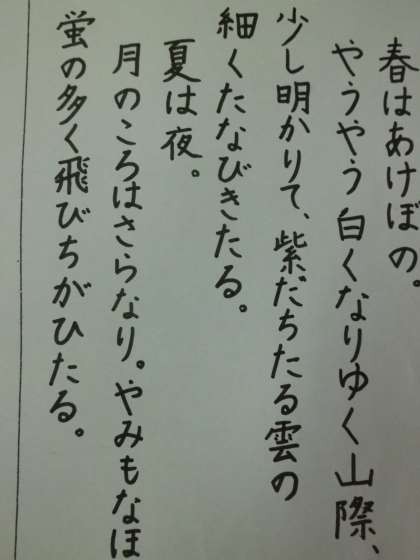 春はあけぼの。
やうやう白くなりゆく山際、
少し明かりて、紫だちたる雲の
細くたなびきたる。
夏は夜。
月のころはさらなり。やみもなほ
蛍の多く飛びちがひたる。